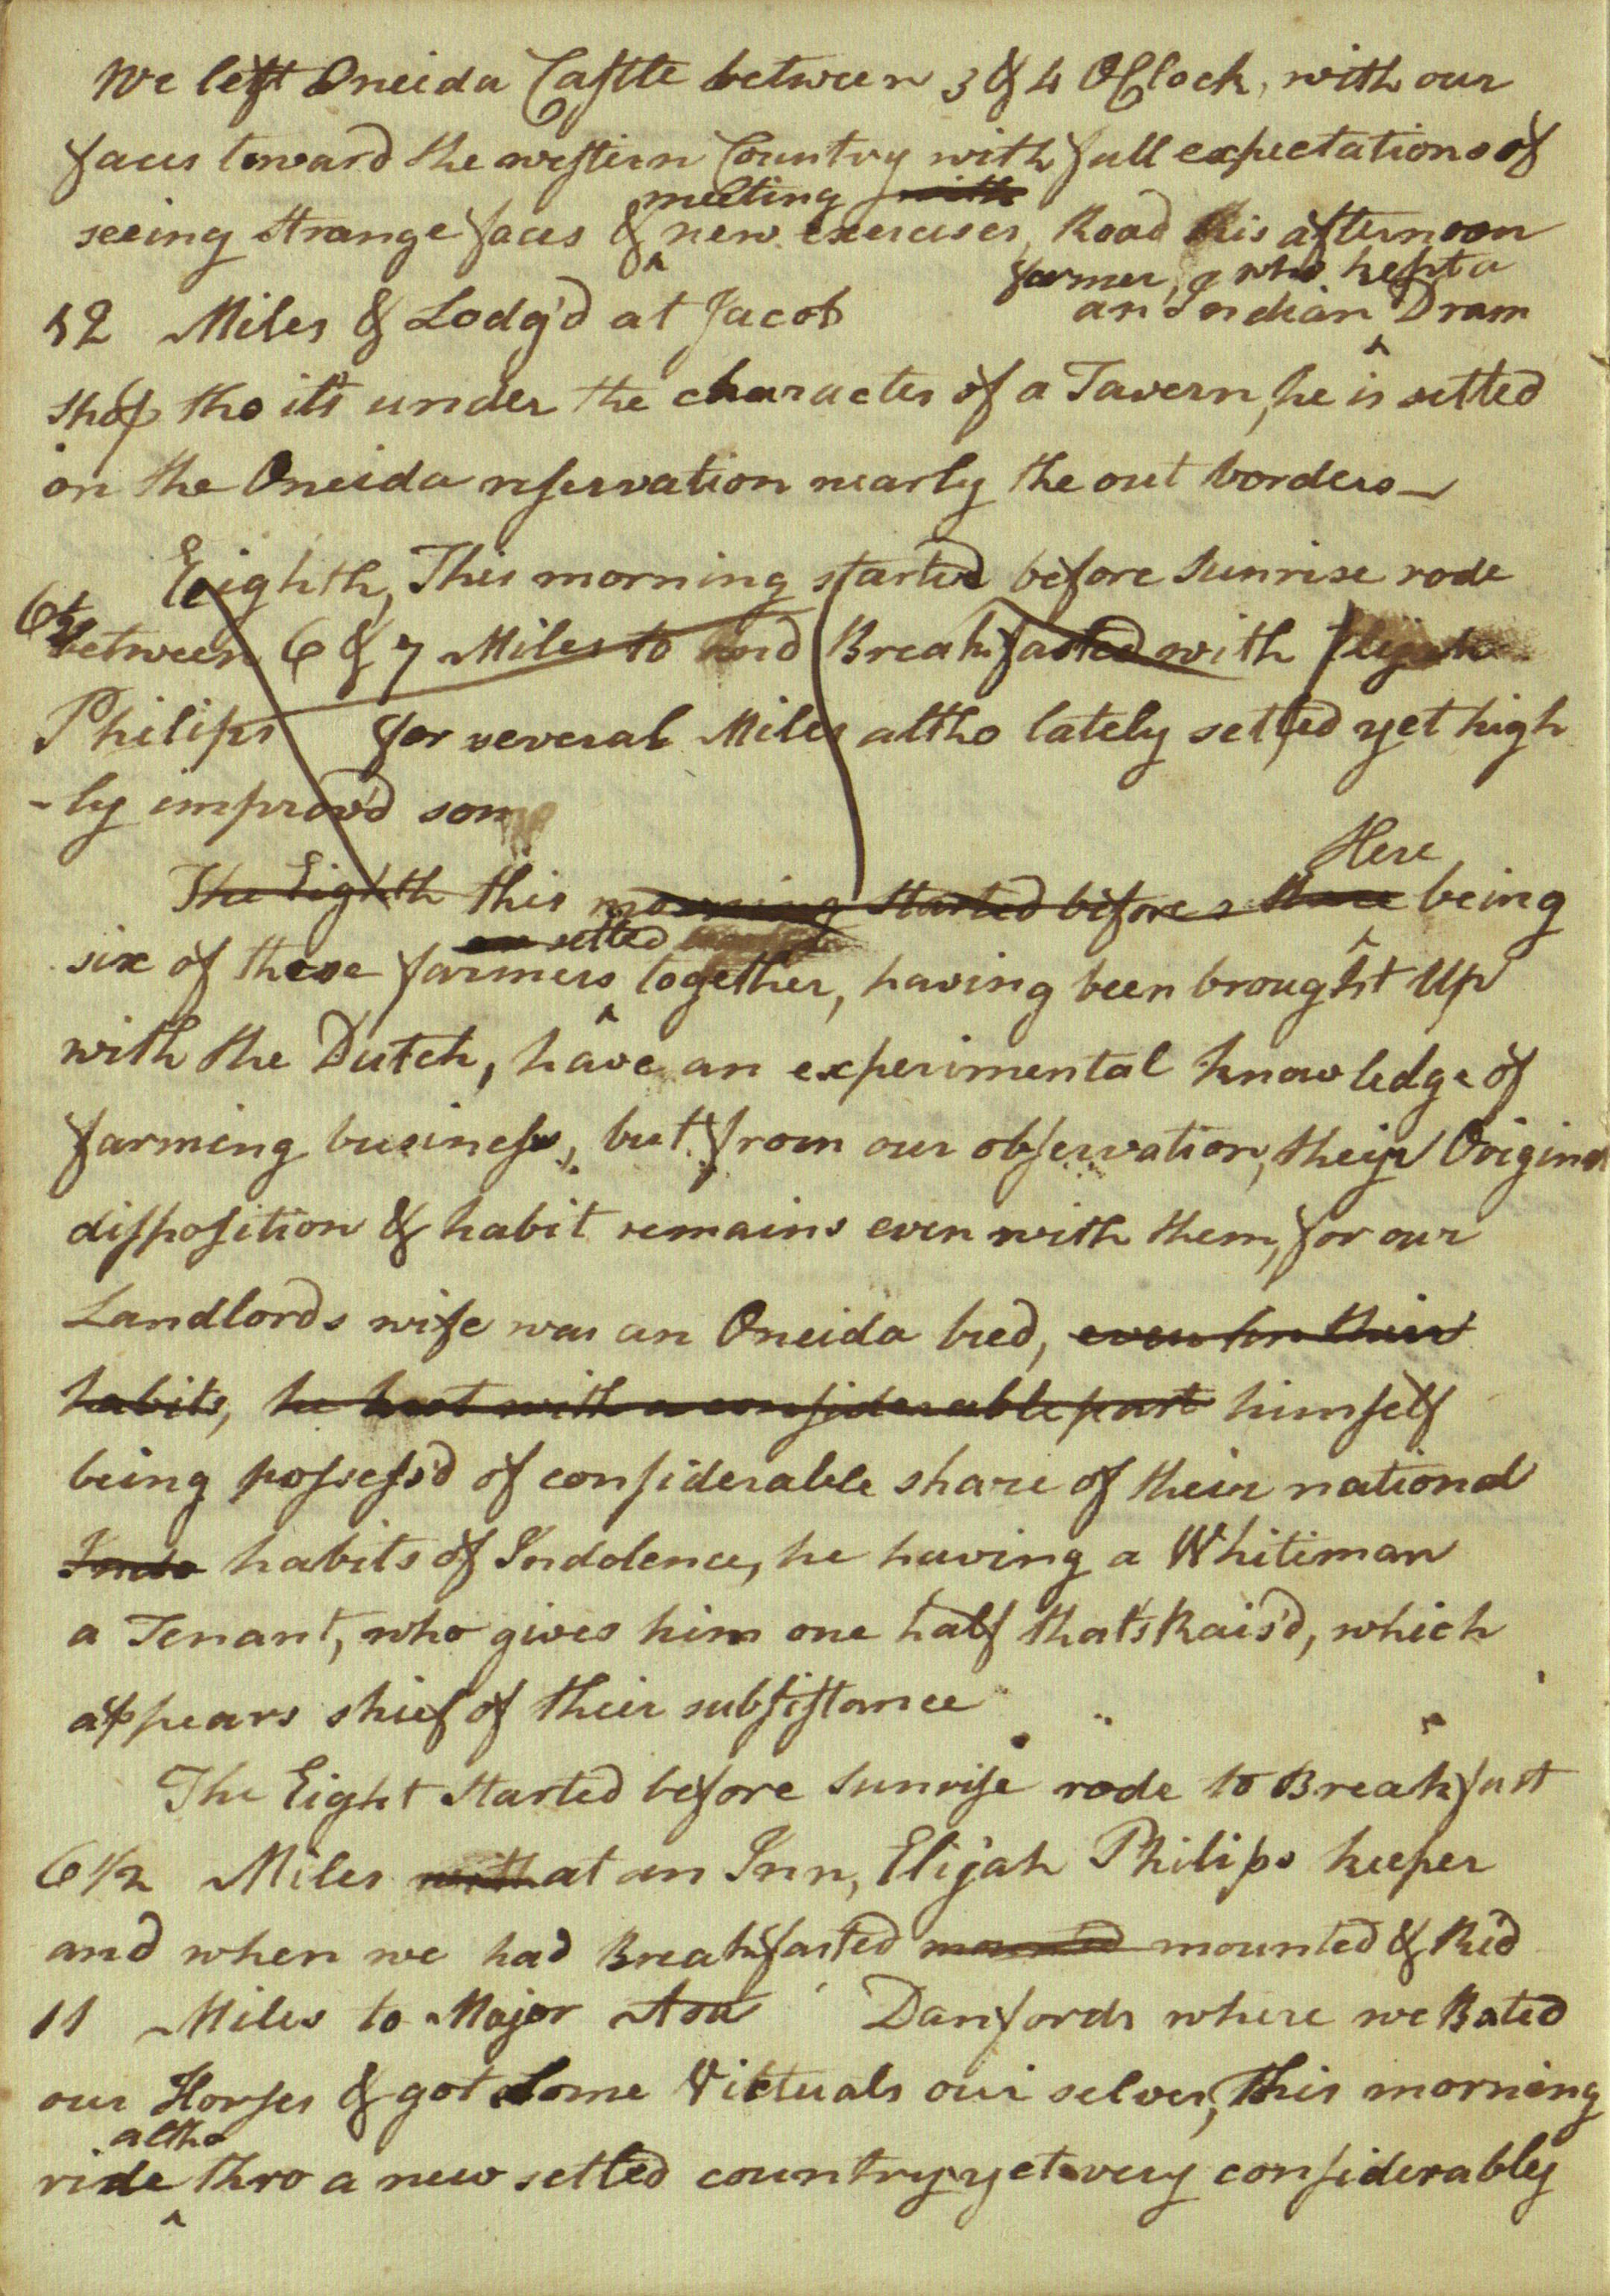 We left Oneida Castle between 3 & 4 OClock, with our
faces toward the western Country with full expectations of
meeting with
seeing strange faces & new exercises, Road this afternoon
farmer, who kept a
12 Miles & Lodg'd at Jacob an Indian Dram
shop tho its under the character of a Tavern, he is setted
on the Oneida reservation nearly the out borders—
Eeighth, This morning started before sunrise rode
6½
between 6 & 7 Miles to and Breakfasted with Elijah
Philips for several Miles altho lately setled yet high
-ly improv'd som
Here
The Eighth this morning started before s there being
setted
six of these farmers together, having been brought Up
with the Dutch, have an experimental knowledge of
farming business, but from our observation, their Original
disposition & habit remains even with them, for our
Landlords wife was an Oneida bred, even for their
habits, he kost with a considerable part himself
being possess'd of considerable share of their national
Indo habits of Indolence, he having a Whiteman
a Tenant, who gives him one half thats Rais'd, which
appears shief of their subsistance
The Eight started before sunrise rode to Breakfast
6 1/2 Miles with at an Inn, Elijah Philips keeper
and when we had Breakfasted mounted mounted & Rid
11 Miles to Major Asa Danfords where we Bated
our Horses & got Some Victuals our selves, this morning
altho
ride thro a new setled country yet very considerably